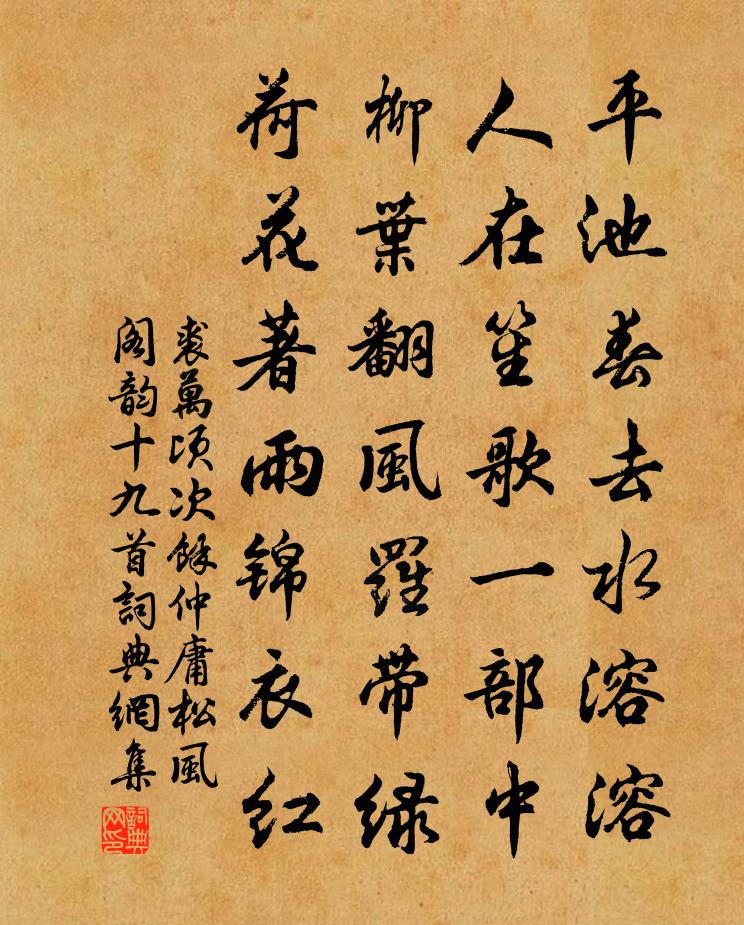 平池春去水溶溶
人在笙歌一部中
柳葉翻風羅帶綠
荷花著雨錦衣紅
裘萬頃次餘仲庸松風
阁韵十九首詞典網集
詞典
网印